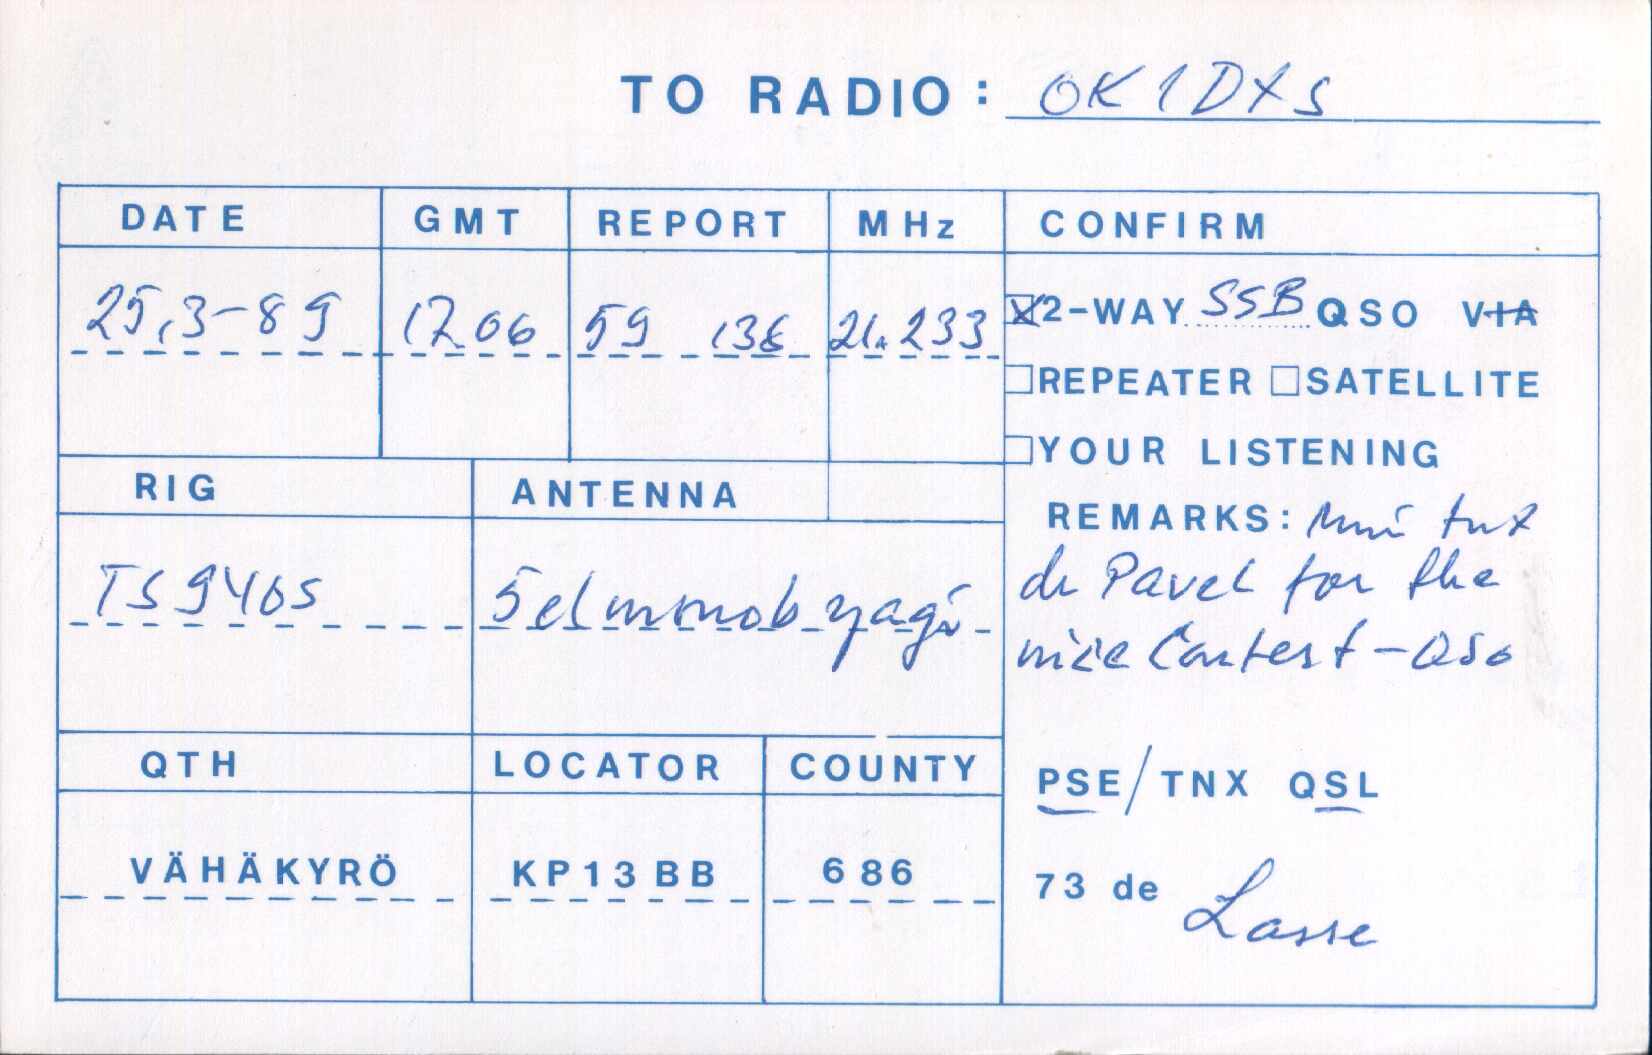 TO RADIO: OK1DXS
DATE GMT REPORT MHz CONFIRM
25.3-89 1706 59 136 21.233 2-WAY SSB QSO VIA
REPEATER SATELLITE
YOUR LISTENING
RIG ANTENNA
REMARKS: Mni tnx
TS940S 5el monob yagi dr Pavel for the
nice Contest-QSO
QTH LOCATOR COUNTY
PSE/TNX QSL
VÄHÄKYRÖ KP13BB 686
73 de Lasse